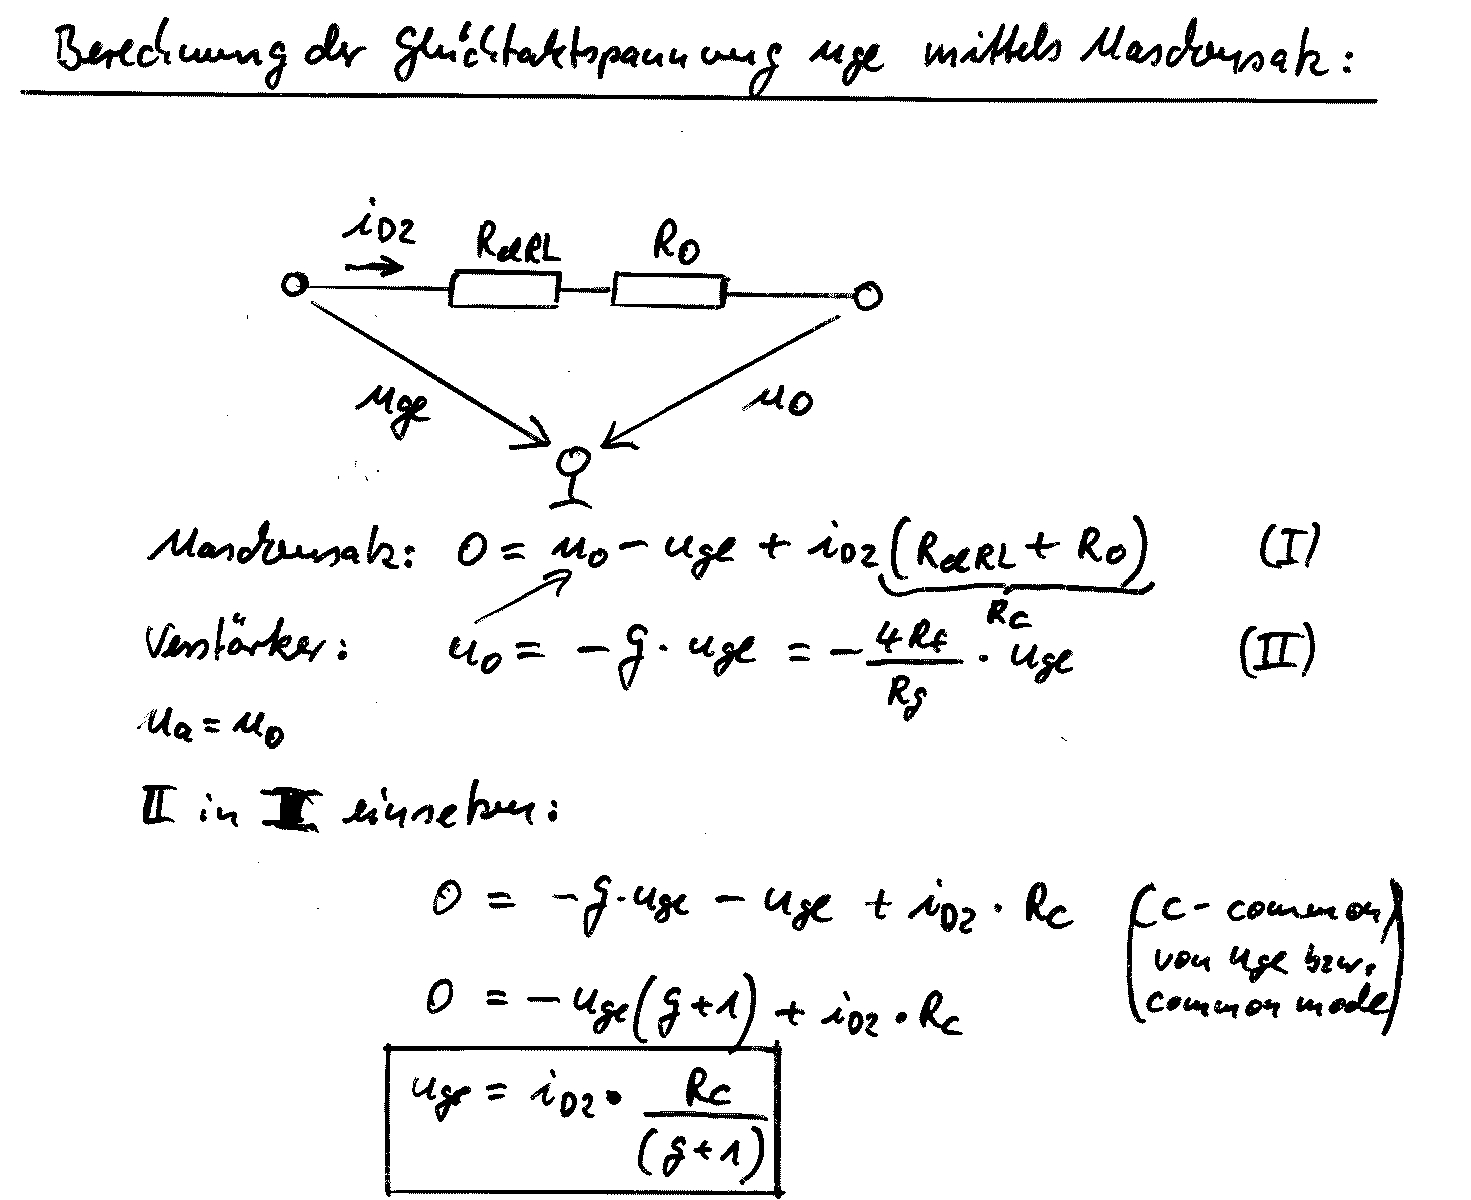 Berechnung der Gleichtaktspannung uge mittels Maschensatz:
iD2 RdRL RO
uge uO
Maschensatz: 0 = uo - uge + iD2 (RdRL + RO) (I)
Rc
Verstärker: uo = - g · uge = - 4Rf / Rg · uge (II)
ua = uo
II in I einsetzen:
0 = -g·uge - uge + iD2 · Rc
(c - common
von uge bzw.
common mode)
0 = - uge (g+1) + iD2 · Rc
uge = iD2 · Rc / (g+1)